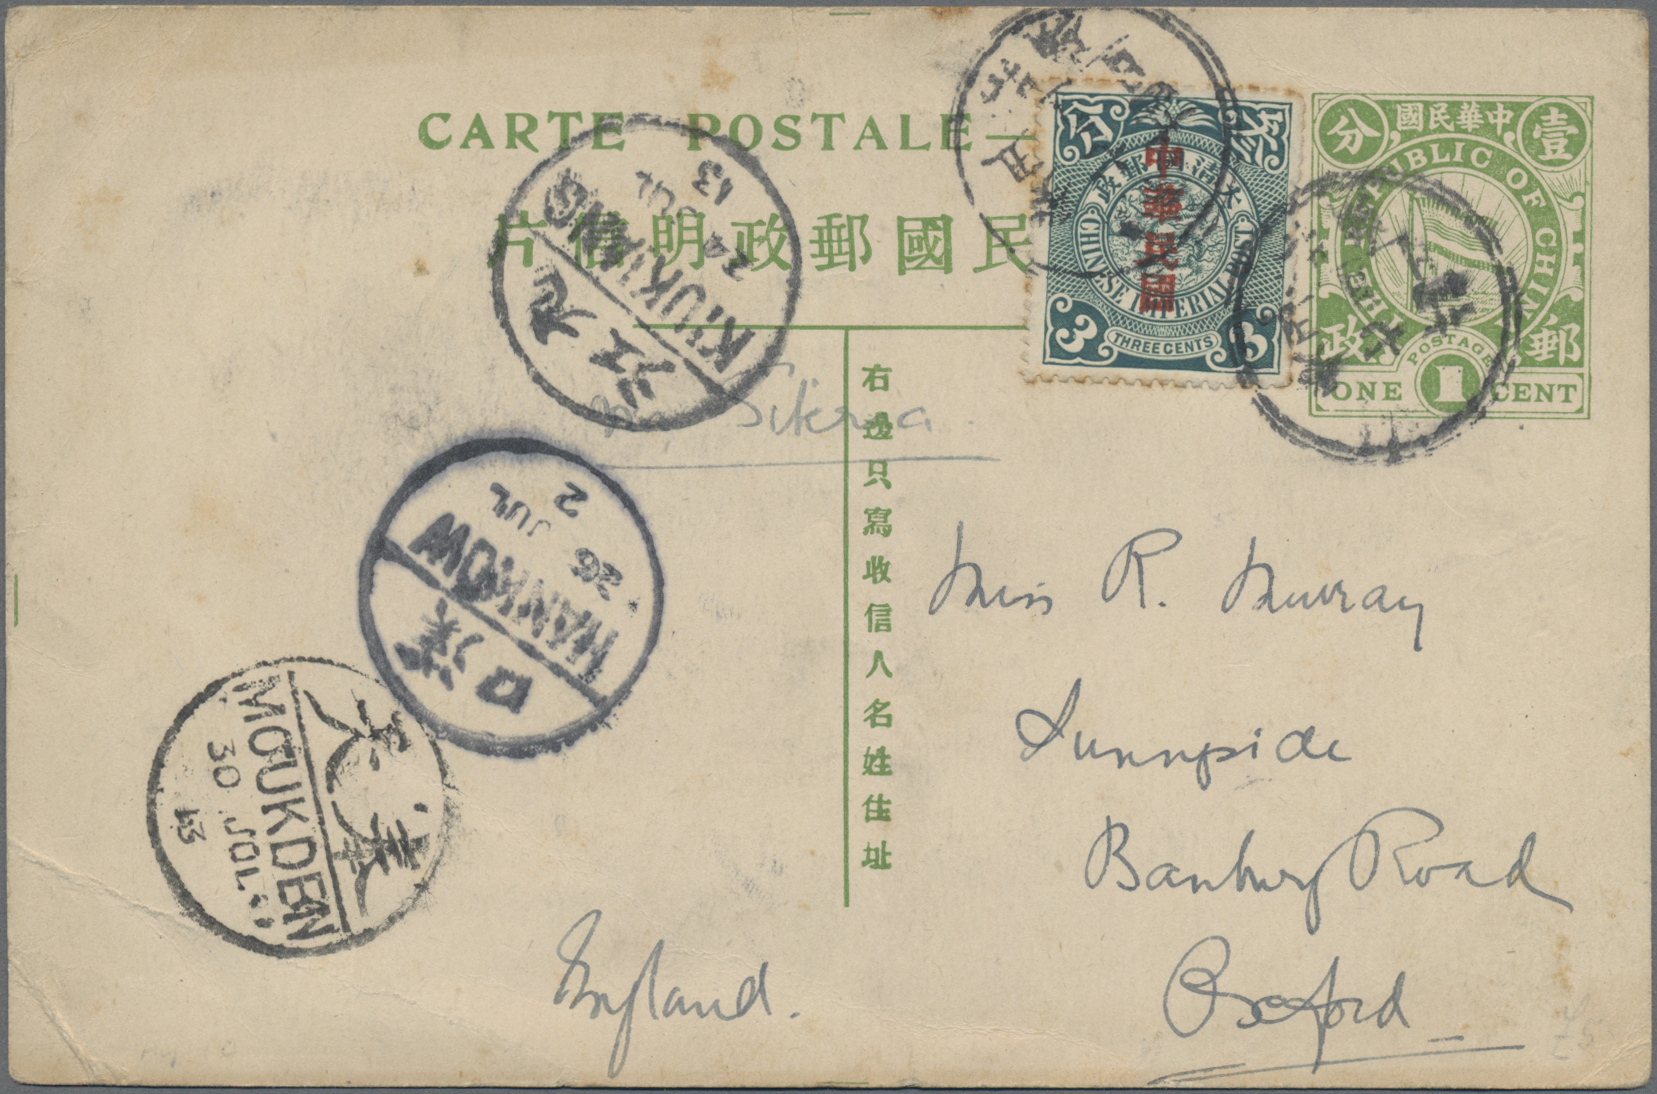 CARTE POSTALE
片信明政郵國民
中華民國
壹 分
REPUBLIC OF CHINA
郵政
POSTAGE
1
ONE CENT
分 叁
大清郵政
中華民國
CHINESE IMPERIAL POST
3 3
THREE CENTS
九江
KIUKIANG
24 JUL
13
Siberia
漢口
HANKOW
26 JUL
2
奉天
MOUKDEN
30 JUL
13
右邊只寫收信人名姓住址
Miss R. Murray
Sunnyside
Banbury Road
Oxford
England.